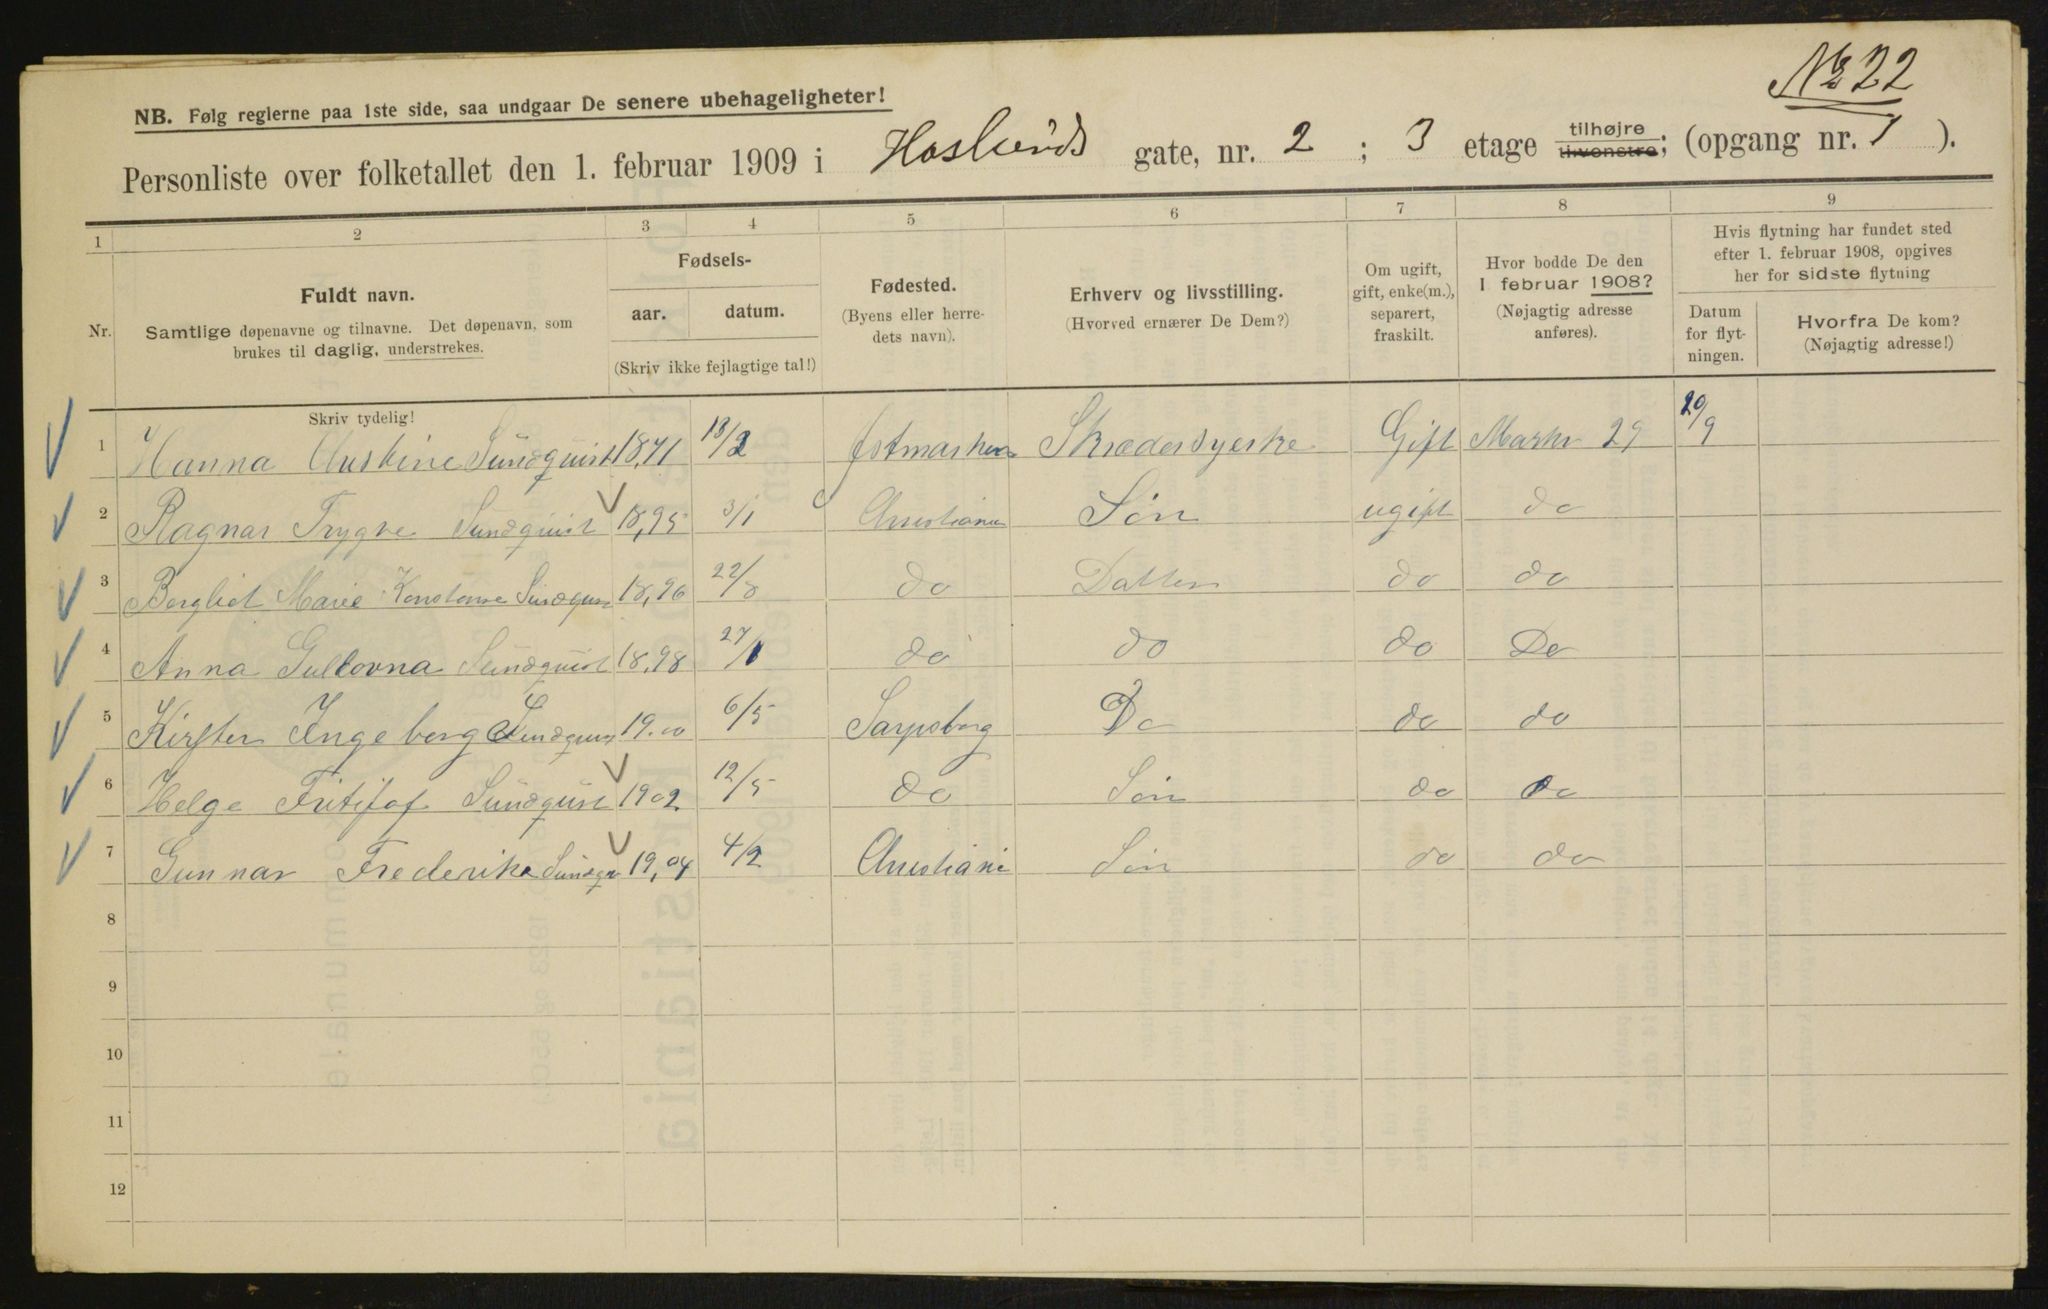 № 22
NB. Følg reglerne paa 1ste side, saa undgaar De senere ubehageligheter!
Personliste over folketallet den 1. februar 1909 i Haslunds gate, nr. 2 ; 3 etage tilhøjre tilvenstre; (opgang nr. 1 ).
1 2 3 4 5 6 7 8 9
Nr.
Fuldt navn.
Samtlige døpenavne og tilnavne. Det døpenavn, som
brukes til daglig, understrekes.
Skriv tydelig!
Fødsels-
aar. datum.
(Skriv ikke fejlagtige tal!)
Fødested.
(Byens eller herre-
dets navn).
Erhverv og livsstilling.
(Hvorved ernærer De Dem?)
Om ugift,
gift, enke(m.),
separert,
fraskilt.
Hvor bodde De den
1 februar 1908?
(Nøjagtig adresse
anføres).
Hvis flytning har fundet sted
efter 1. februar 1908, opgives
her for sidste flytning
Datum
for flyt-
ningen.
Hvorfra De kom?
(Nøjagtig adresse!)
1 Hanna Christine Sundquist 1871 18/2 Østmarken Skrædersyerske Gift Markv 29 20/9
2 Ragnar Trygve Sundquist 18,95 3/1 Christiania Søn ugift do
3 Bergliot Marie Konstanse Sundquist 18,96 22/8 do Datter do do
4 Anna Sundquist 18,98 27/1 do do do Do
5 Kirsten Ingeborg Sundquist 19.00 6/5 Sarpsborg Do do do
6 Helge Fritjof Sundquist 1902 12/5 do Søn do do
7 Gunnar Frederik Sundqu 19,04 4/2 Christiania Søn do do
8
9
10
11
12